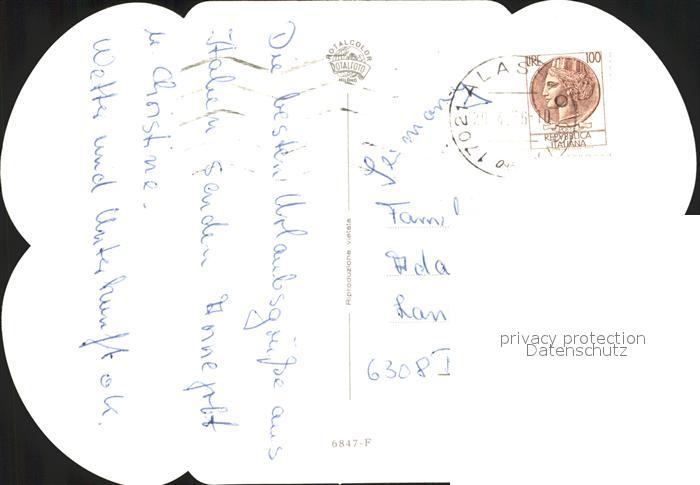 Die besten Urlaubsgrüße aus
Italien senden Annegret
u. Christine.
Wetter und Unterkunft ok.
ROTALCOLOR
ROTALFOTO
MILANO
Riproduzione vietata
6847-F
17021 ALAS
LIRE 100
REPVBBLICA
ITALIANA
Fami
Ada
Lan
6308
privacy protection
Datenschutz